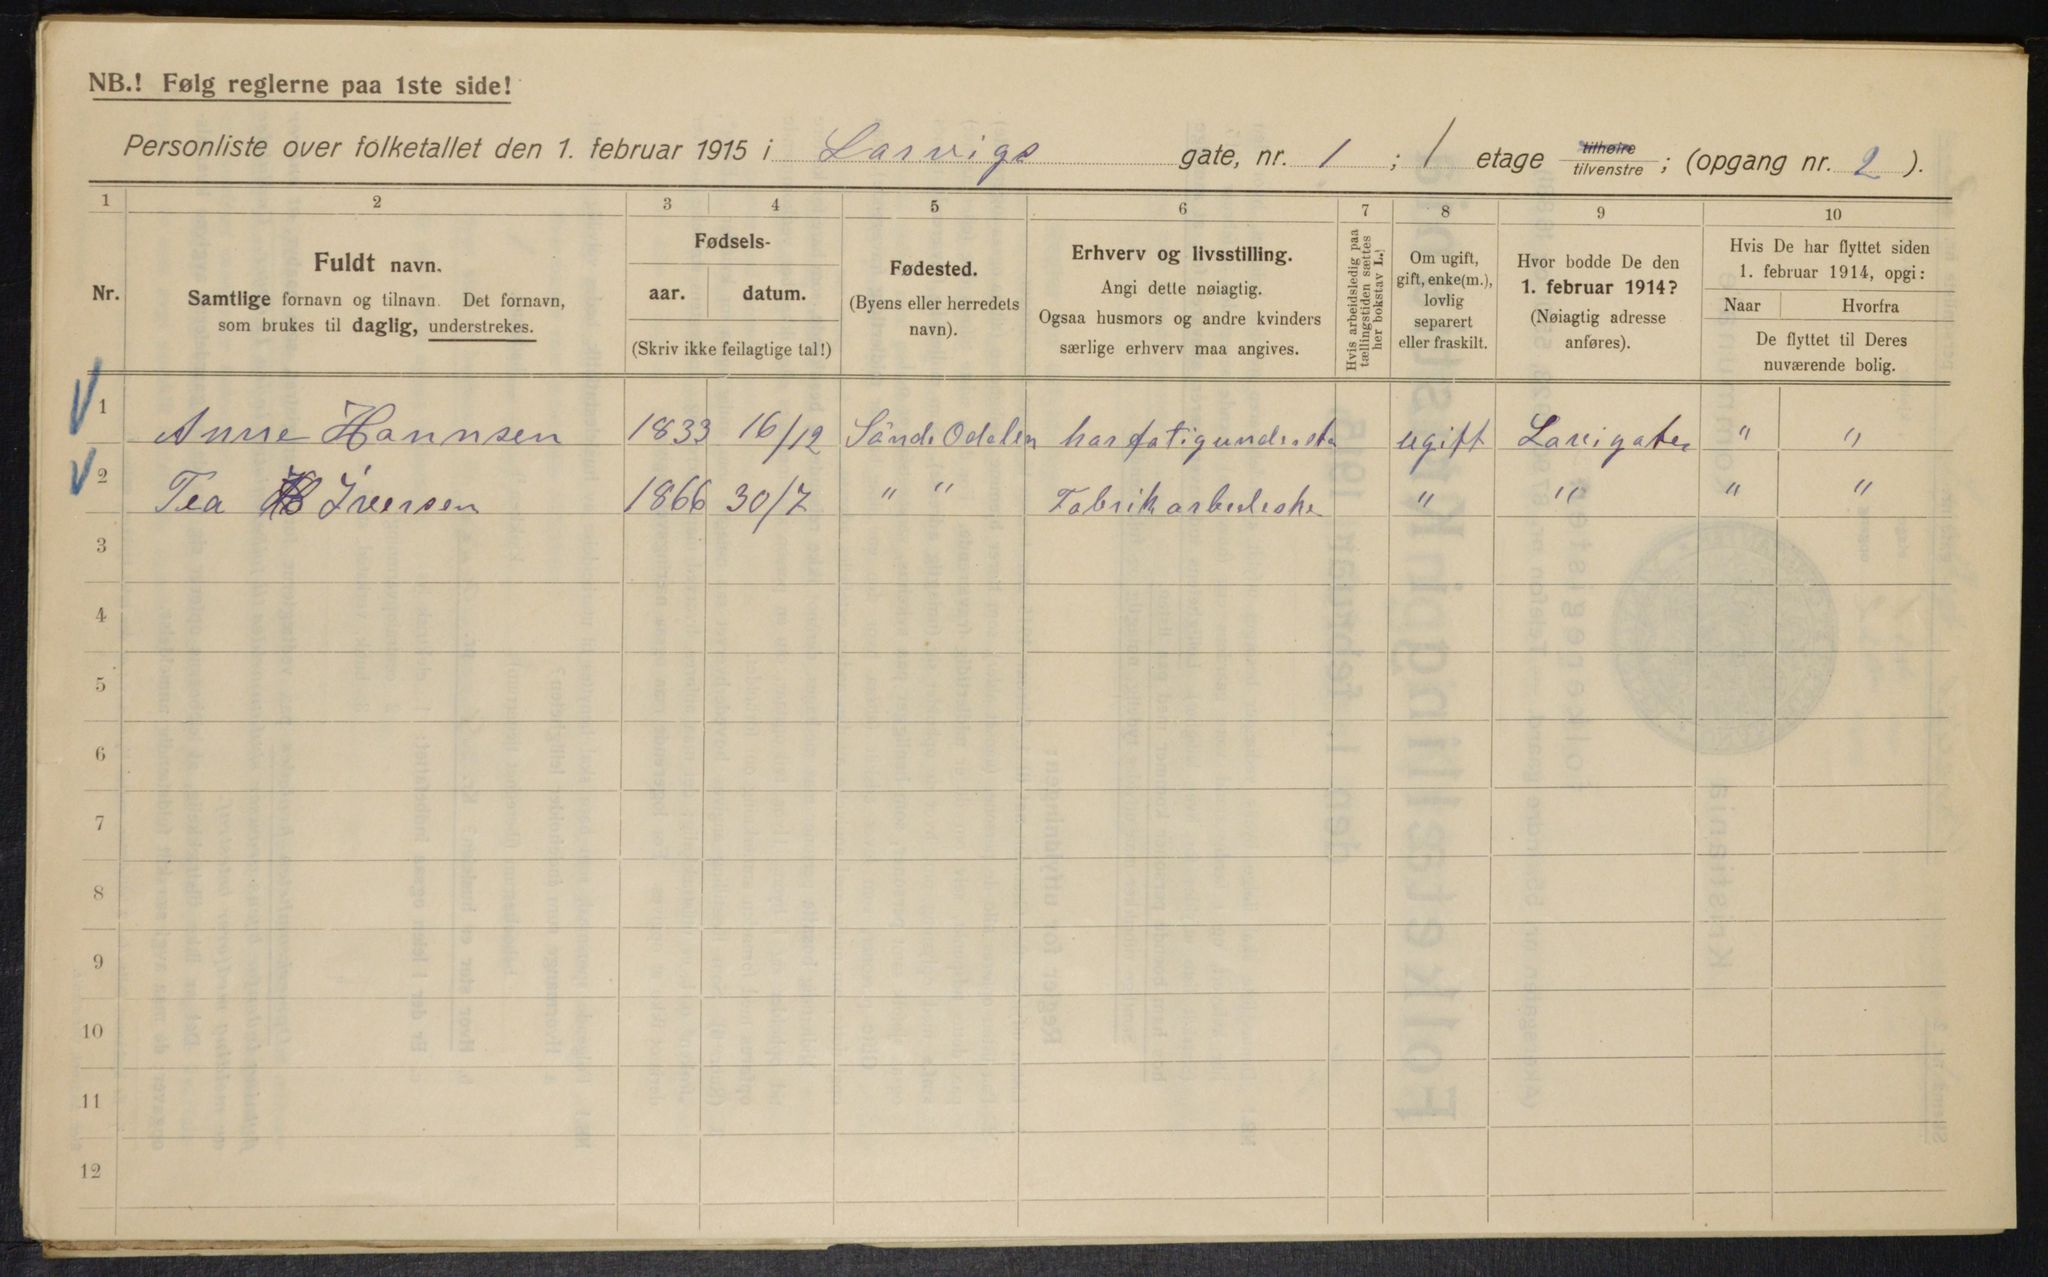 NB.! Følg reglerne paa 1ste side!
Personliste over folketallet den 1. februar 1915 i Larvigs gate, nr. 1 ; 1 etage tilhøire tilvenstre ; (opgang nr. 2 ).
1 2 3 4 5 6 7 8 9 10
Nr.
Fuldt navn.
Samtlige fornavn og tilnavn. Det fornavn,
som brukes til daglig, understrekes.
Fødsels-
aar. datum.
(Skriv ikke feilagtige tal!)
Fødested.
(Byens eller herredets
navn).
Erhverv og livsstilling.
Angi dette nøiagtig.
Ogsaa husmors og andre kvinders
særlige erhverv maa angives.
Hvis arbeidsledig paa
tællingstiden sættes
her bokstav L.!
Om ugift,
gift, enke(m.),
lovlig
separert
eller fraskilt.
Hvor bodde De den
1. februar 1914?
(Nøiagtig adresse
anføres).
Hvis De har flyttet siden
1. februar 1914, opgi:
Naar Hvorfra
De flyttet til Deres
nuværende bolig.
1 Anne Hannsen 1833 16/12 Sánde Odalen har fatigundersta ugift Larvigates " "
2 Tea Iversen 1866 30/7 " " Fabrikarbeideske " " " "
3
4
5
6
7
8
9
10
11
12